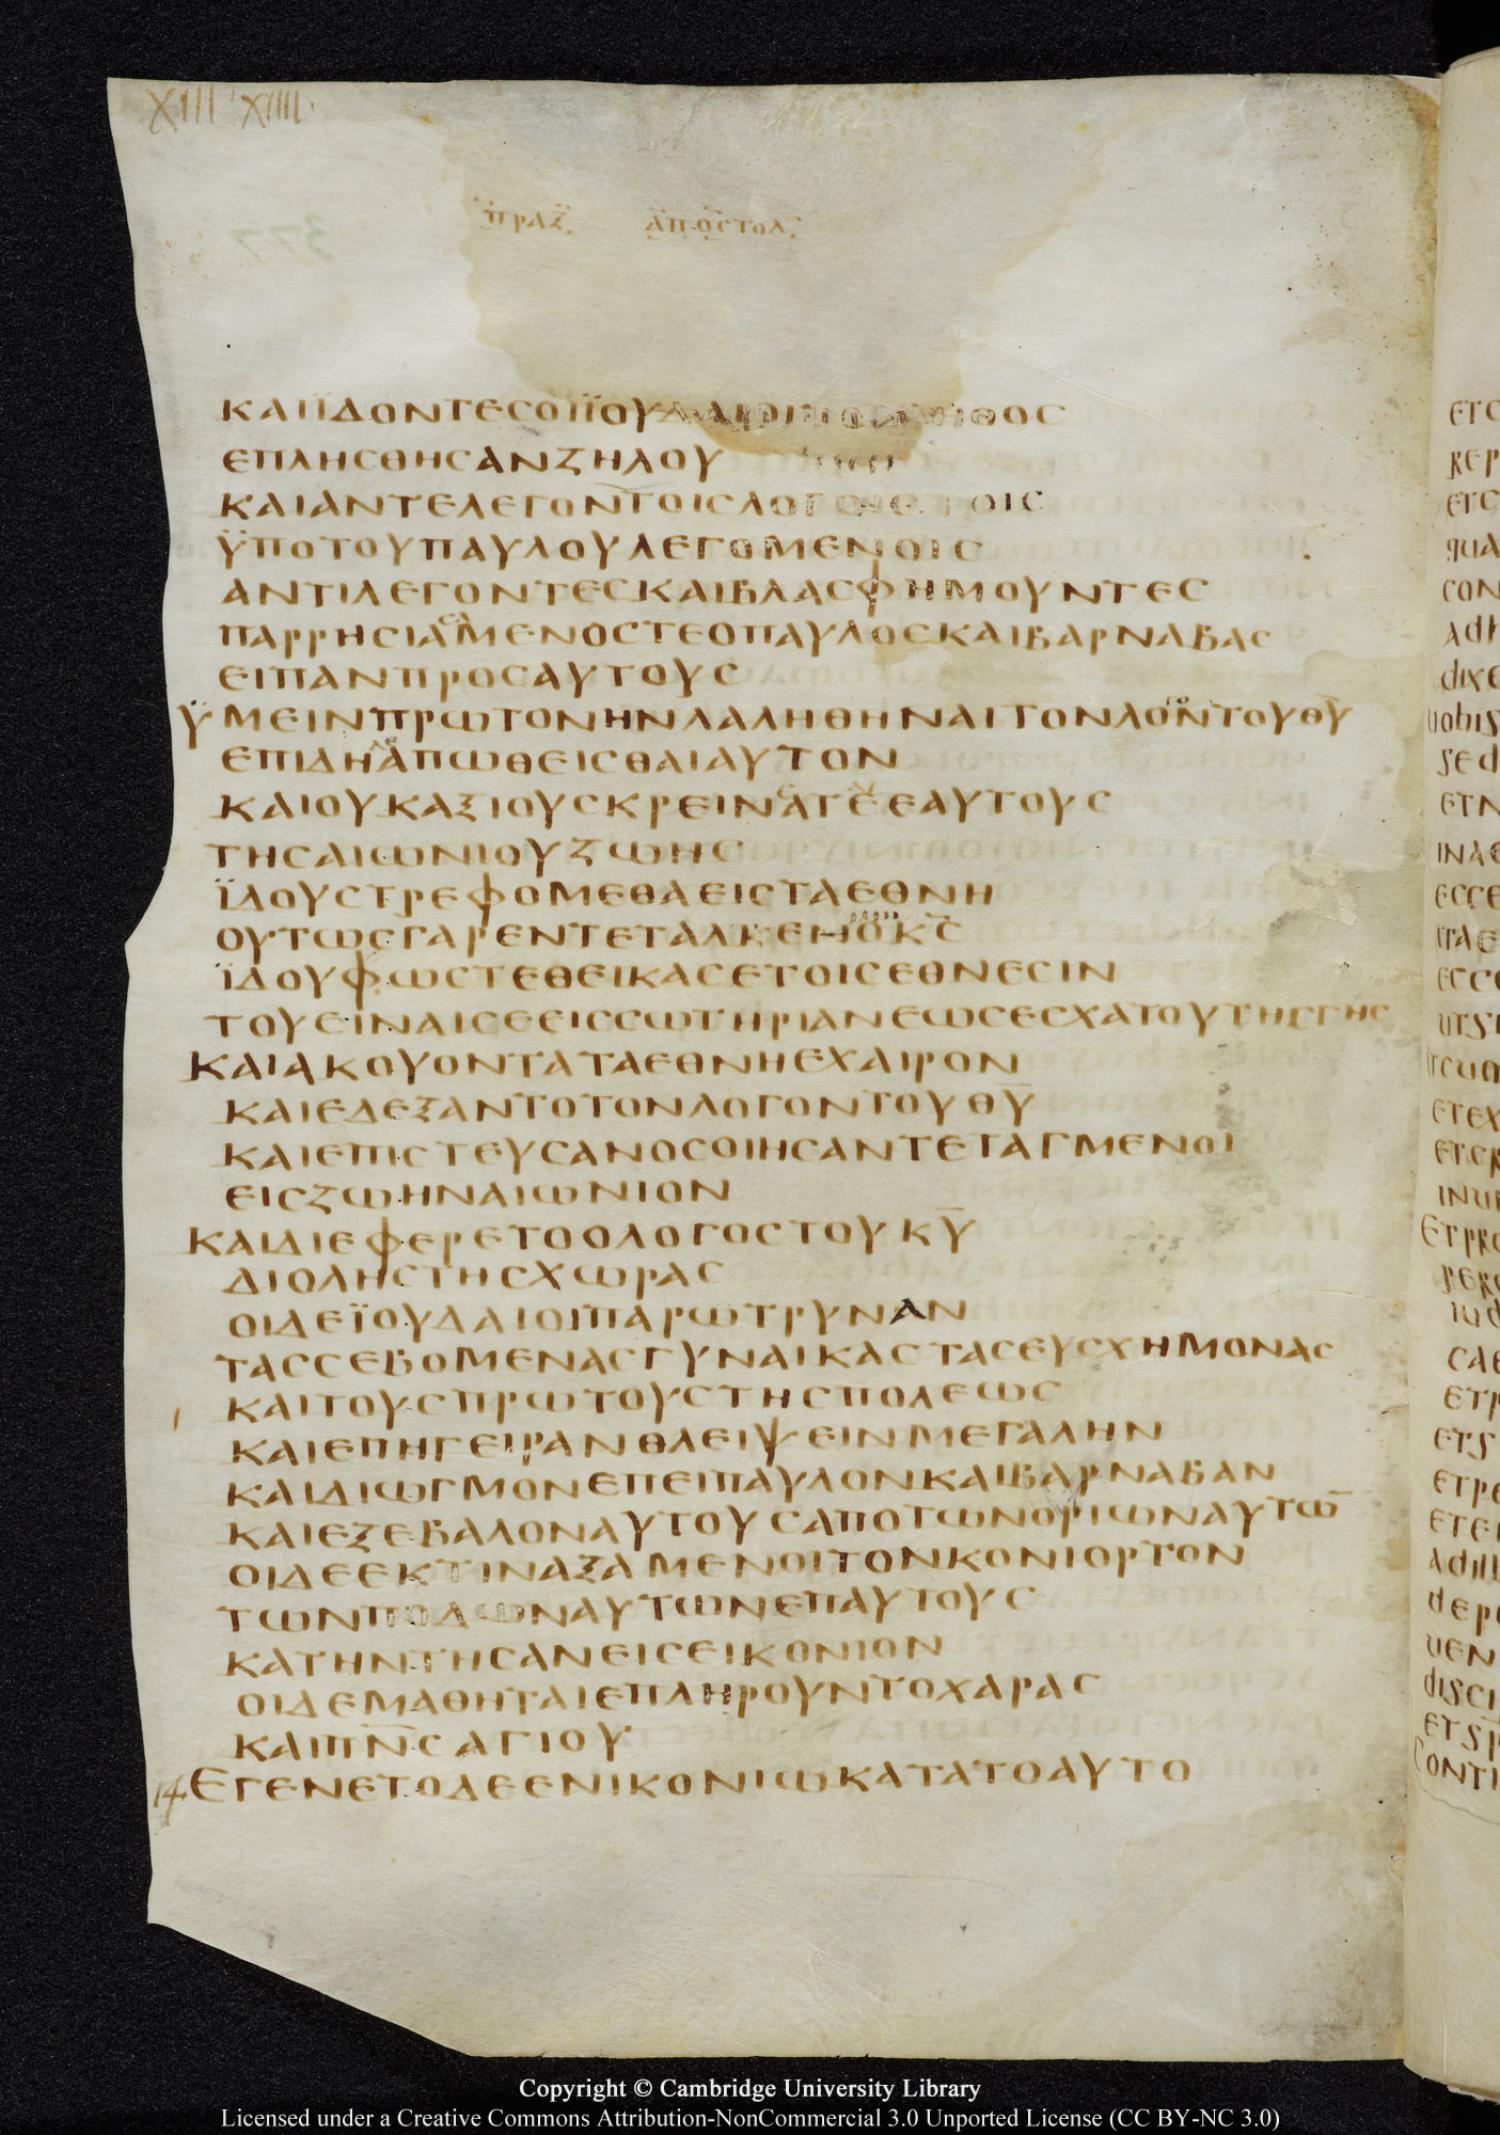 XIII XIIII
πραξ αποστολ
377
ΚΑΙΪΔΟΝΤΕϹΟΙΪΟΥΔΑΙΟΙΤΟΠΛΗΘΟϹ
ΕΠΛΗϹΘΗϹΑΝΖΗΛΟΥ
ΚΑΙΑΝΤΕΛΕΓΟΝΤΟΙϹΛΟΓΟΙϹΤΟΙϹ
ΫΠΟΤΟΥΠΑΥΛΟΥΛΕΓΟΜΕΝΟΙϹ
ΑΝΤΙΛΕΓΟΝΤΕϹΚΑΙΒΛΑϹΦΗΜΟΥΝΤΕϹ
ΠΑΡΡΗϹΙΑϹΑΜΕΝΟϹΤΕΟΠΑΥΛΟϹΚΑΙΒΑΡΝΑΒΑϹ
ΕΙΠΑΝΠΡΟϹΑΥΤΟΥϹ
ΫΜΕΙΝΠΡΩΤΟΝΗΝΛΑΛΗΘΗΝΑΙΤΟΝΛΟΓΟΝΤΟΥΘ̅Υ̅
ΕΠΙΔΗΔΕΑΠΩΘΕΙϹΘΑΙΑΥΤΟΝ
ΚΑΙΟΥΚΑΞΙΟΥϹΚΡΕΙΝΑΤΕΕΑΥΤΟΥϹ
ΤΗϹΑΙΩΝΙΟΥΖΩΗϹ
ΪΔΟΥϹΤΡΕΦΟΜΕΘΑΕΙϹΤΑΕΘΝΗ
ΟΥΤΩϹΓΑΡΕΝΤΕΤΑΛΚΕΝΟΚ̅Ϲ̅
ΪΔΟΥΦΩϹΤΕΘΕΙΚΑϹΕΤΟΙϹΕΘΝΕϹΙΝ
ΤΟΥΕΙΝΑΙϹΕΕΙϹϹΩΤΗΡΙΑΝΕΩϹΕϹΧΑΤΟΥΤΗϹΓΗϹ
ΚΑΙΑΚΟΥΟΝΤΑΤΑΕΘΝΗΕΧΑΙΡΟΝ
ΚΑΙΕΔΕΞΑΝΤΟΤΟΝΛΟΓΟΝΤΟΥΘ̅Υ̅
ΚΑΙΕΠΙϹΤΕΥϹΑΝΟϹΟΙΗϹΑΝΤΕΤΑΓΜΕΝΟΙ
ΕΙϹΖΩΗΝΑΙΩΝΙΟΝ
ΚΑΙΔΙΕΦΕΡΕΤΟΟΛΟΓΟϹΤΟΥΚ̅Υ̅
ΔΙΟΛΗϹΤΗϹΧΩΡΑϹ
ΟΙΔΕΪΟΥΔΑΙΟΙΠΑΡΩΤΡΥΝΑΝ
ΤΑϹϹΕΒΟΜΕΝΑϹΓΥΝΑΙΚΑϹΤΑϹΕΥϹΧΗΜΟΝΑϹ
ΚΑΙΤΟΥϹΠΡΩΤΟΥϹΤΗϹΠΟΛΕΩϹ
ΚΑΙΕΠΗΓΕΙΡΑΝΘΛΕΙΨΕΙΝΜΕΓΑΛΗΝ
ΚΑΙΔΙΩΓΜΟΝΕΠΕΙΠΑΥΛΟΝΚΑΙΒΑΡΝΑΒΑΝ
ΚΑΙΕΞΕΒΑΛΟΝΑΥΤΟΥϹΑΠΟΤΩΝΟΡΙΩΝΑΥΤΩ̅
ΟΙΔΕΕΚΤΙΝΑΞΑΜΕΝΟΙΤΟΝΚΟΝΙΟΡΤΟΝ
ΤΩΝΠΟΔΩΝΑΥΤΩΝΕΠΑΥΤΟΥϹ
ΚΑΤΗΝΤΗϹΑΝΕΙϹΕΙΚΟΝΙΟΝ
ΟΙΔΕΜΑΘΗΤΑΙΕΠΛΗΡΟΥΝΤΟΧΑΡΑϹ
ΚΑΙΠ̅Ν̅Ϲ̅ΑΓΙΟΥ
14 ΕΓΕΝΕΤΟΔΕΕΝΙΚΟΝΙΩΚΑΤΑΤΟΑΥΤΟ
Copyright © Cambridge University Library
Licensed under a Creative Commons Attribution-NonCommercial 3.0 Unported License (CC BY-NC 3.0)